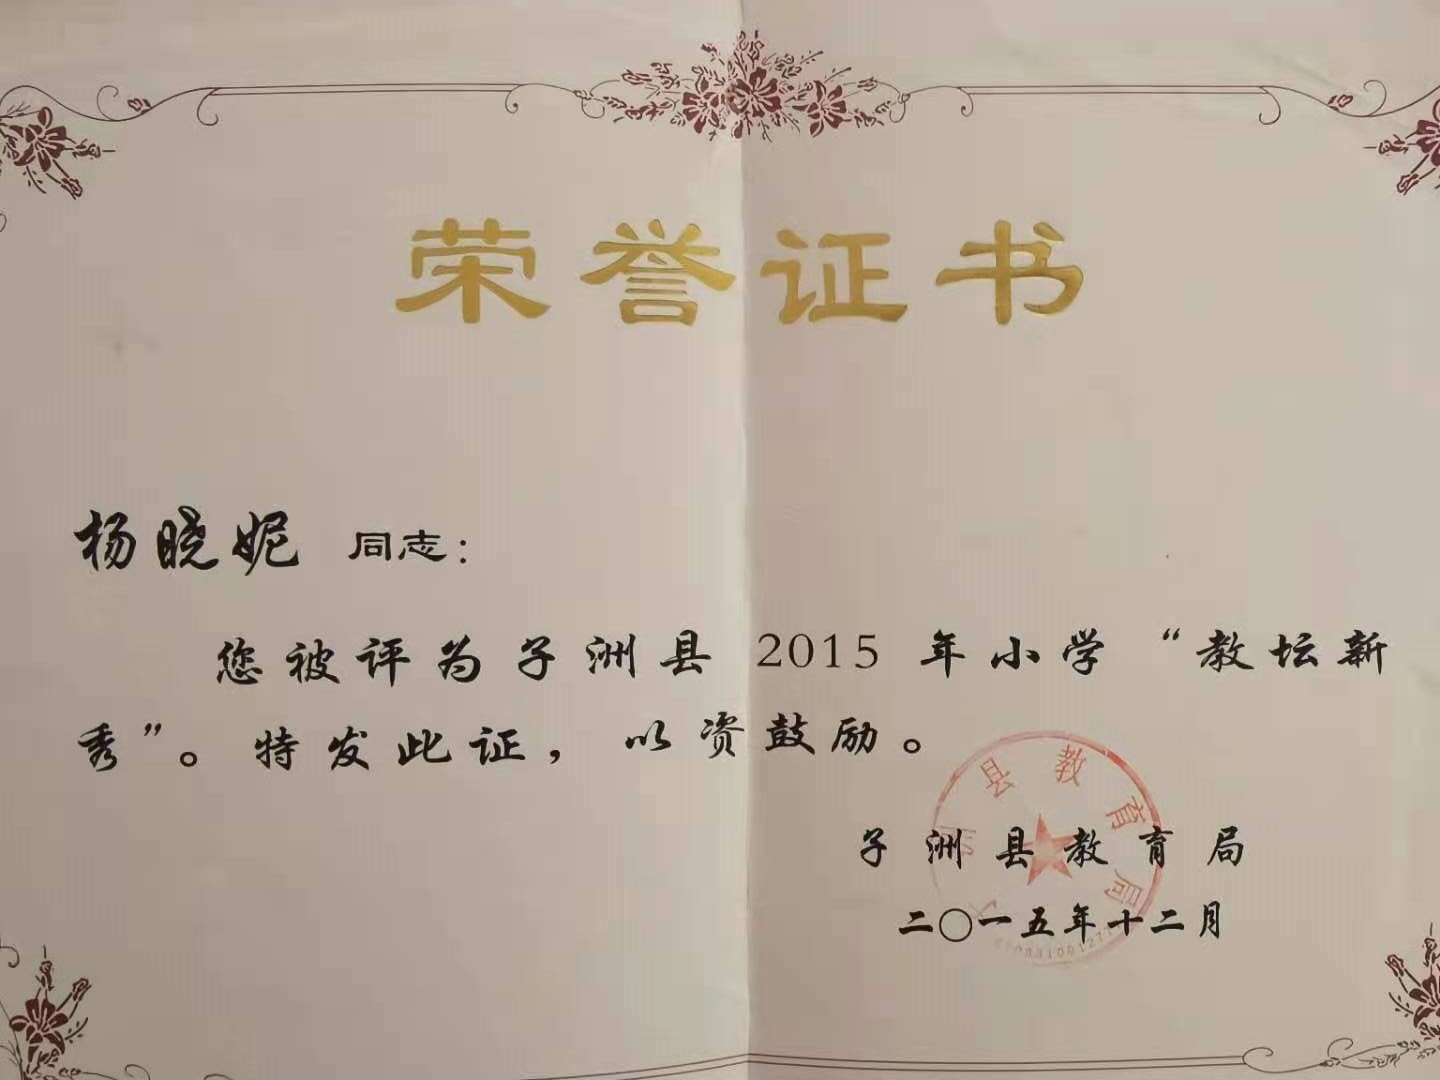 荣誉证书
杨晓妮 同志：
您被评为子洲县 2015 年小学“教坛新
秀”。特发此证，以资鼓励。
县教育局
子洲县教育局
二〇一五年十二月